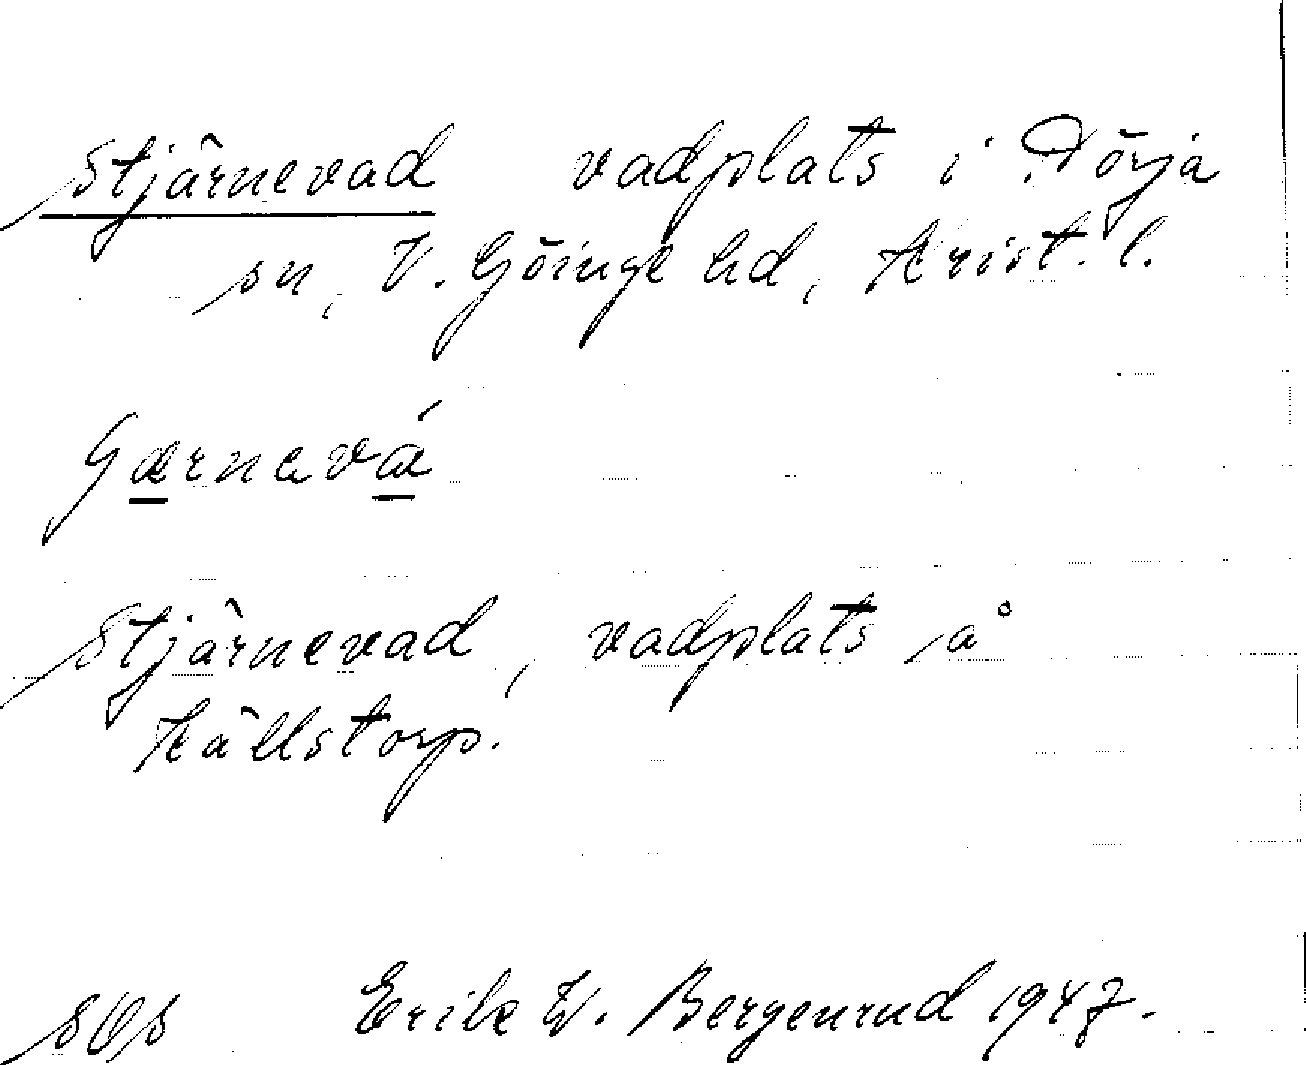 Stjärnevad vadplats i Dörja
sn, V. Göinge hd, Krist. l.
Gærnavá
Stjärnevad, vadplats å
Källstorp.
Erik W. Bergenrud 1947.